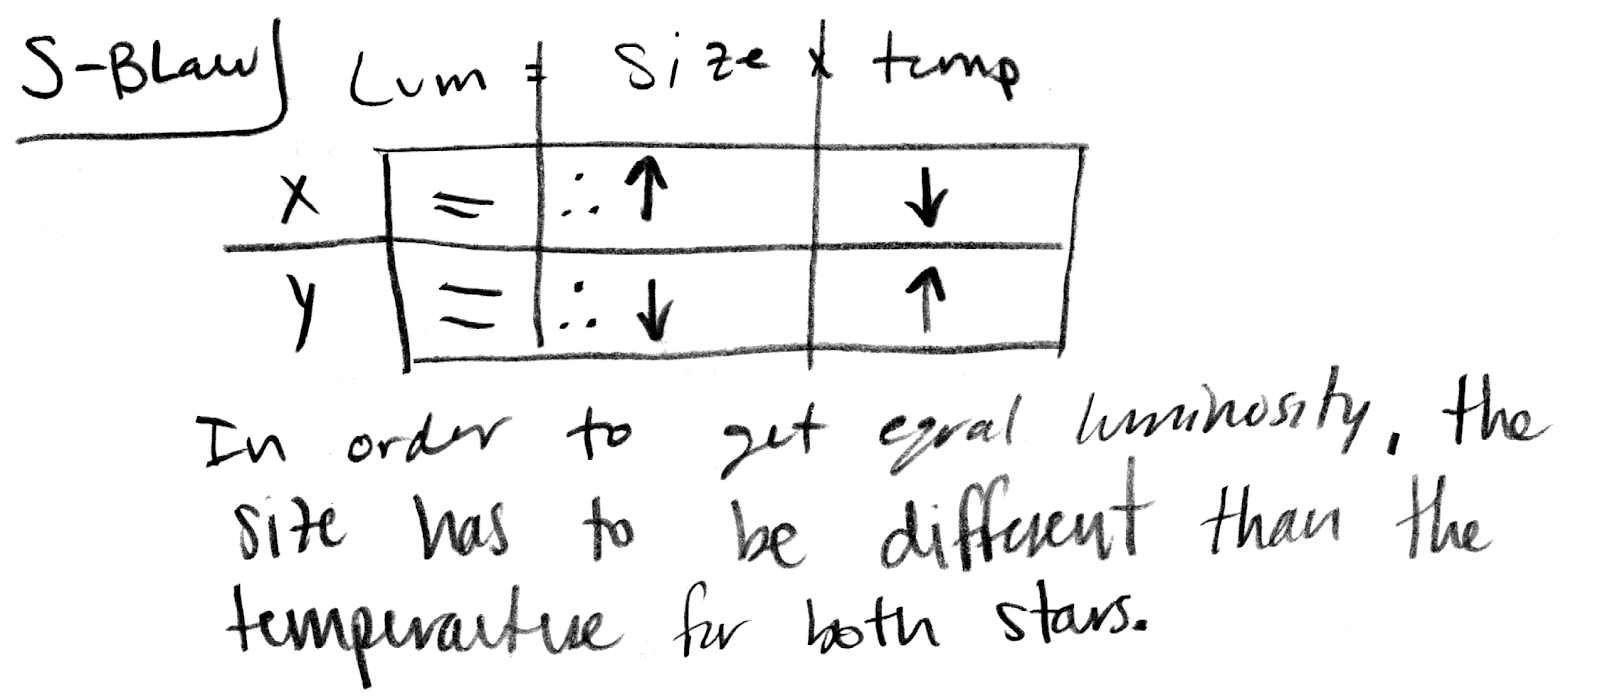 S-B Law Lum = Size x temp
X = ∴ ↑ ↓
Y = ∴ ↓ ↑
In order to get equal luminosity, the
size has to be different than the
temperature for both stars.